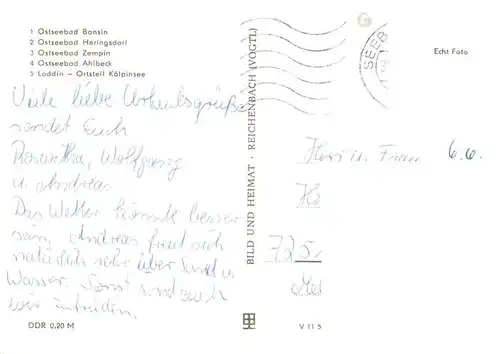 1 Ostseebad Bansin
2 Ostseebad Heringsdorf
3 Ostseebad Zempin
4 Ostseebad Ahlbeck
5 Loddin – Ortsteil Kölpinsee
Viele liebe Urlaubsgrüße
sendet Euch
Roswitha, Wolfgang
u. Andreas
Das Wetter könnte besser
sein, Andreas freut sich
natürlich sehr über Sand u.
Wasser. Sonst sind auch
wir zufrieden.
DDR 0,20 M
BILD UND HEIMAT · REICHENBACH (VOGTL)
SEEB
Echt Foto
Herr u. Frau G. G.
725
V 11 5